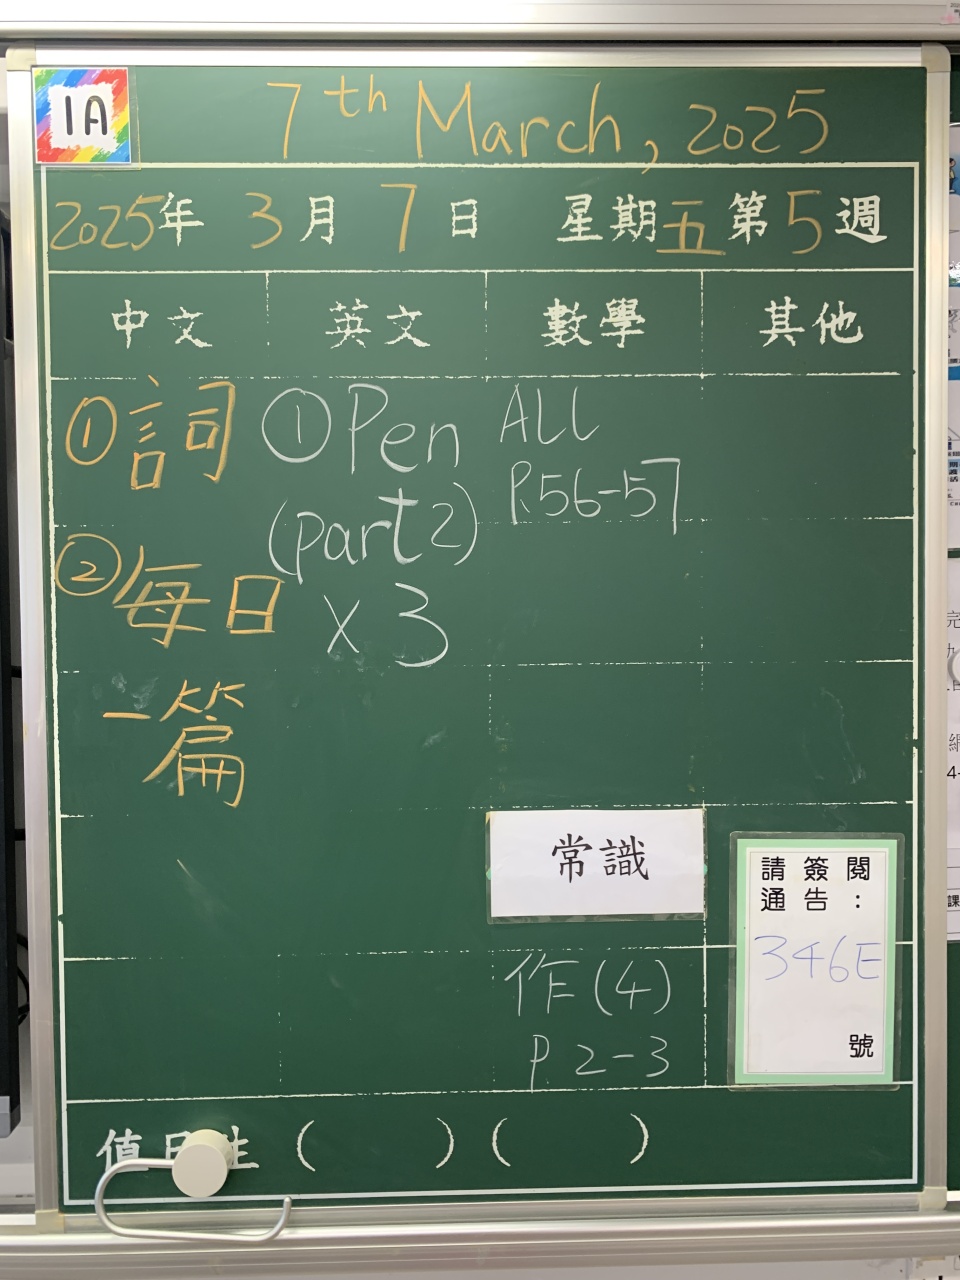 1A
7th March, 2025
2025年 3月 7日 星期五 第5週
中文 英文 數學 其他
①詞
②每日
一篇
①Pen
(part 2)
x 3
ALL
P.56-57
常識
作(4)
P.2-3
請簽閱
通告：
346E
號
值日生 ( ) ( )